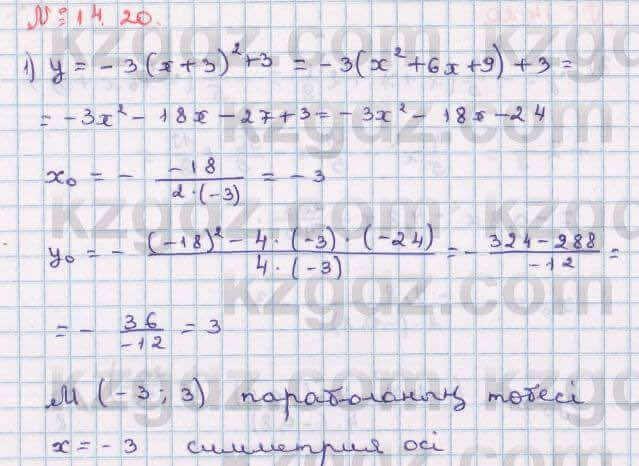 № 14.20.
1) y = -3(x+3)²+3 = -3(x²+6x+9)+3 =
= -3x² - 18x - 27+3 = -3x² - 18x - 24
x₀ = - -18 / 2·(-3) = -3
y₀ = - (-18)² - 4·(-3)·(-24) / 4·(-3) = - 324-288 / -12 =
= - 36 / -12 = 3
M (-3; 3) параболаның төбесі
x = -3 симметрия осі
kzgdz.com